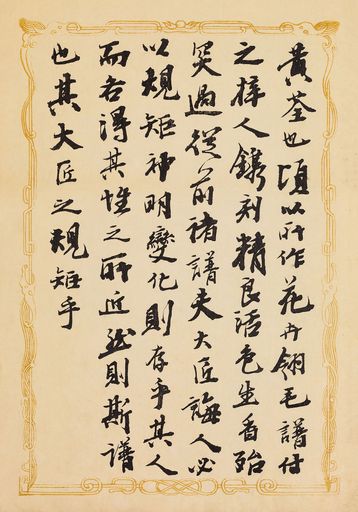 黄荃也頃以所作花卉翎毛譜付
之梓人鐫刻精良活色生香殆
突過從前諸譜夫大匠誨人必
以規矩神明變化則存乎其人
而各得其性之所近然則斯譜
也其大匠之規矩乎